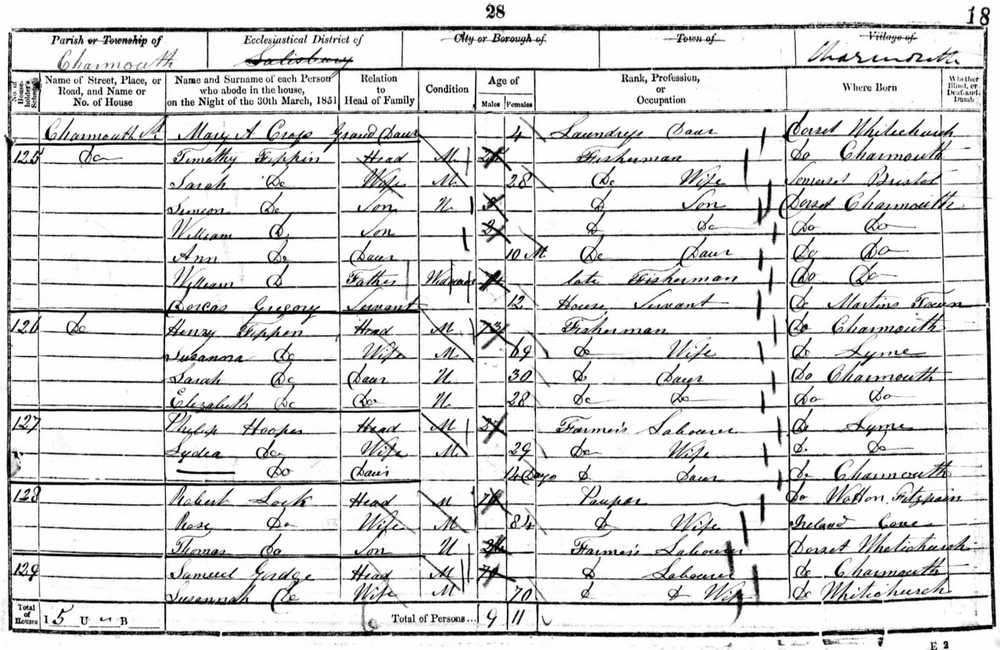 28
18
Parish or Township of Ecclesiastical District of City or Borough of Town of Village of
Charmouth Salisbury Charmouth
No. of House-holder's Schedule Name of Street, Place, or Road, and Name or No. of House Name and Surname of each Person who abode in the house, on the Night of the 30th March, 1851 Relation to Head of Family Condition Age of Males Females Rank, Profession, or Occupation Where Born Whether Blind, or Deaf-and-Dumb
Charmouth St Mary A Crops Grand Daur 4 Laundrys Daur Dorset Whitechurch
125 Do Timothy Fippin Head M Fisherman Do Charmouth
Sarah Do Wife M 28 Do Wife Somerset Bristol
Simeon Do Son U D Son Dorset Charmouth
William D Son D Do Do Do
Ann Do Daur 10 M Do Daur Do Do
William D Father Widower late Fisherman Do Do
Dorcas Gregory Servant 12 House Servant Do Martins Town
126 Do Henry Fippen Head M 73 Fisherman Do Charmouth
Susanna Do Wife M 69 Do Wife Do Lyme
Sarah Do Daur U 30 Do Daur Do Charmouth
Elizabeth Do Do U 28 Do Do Do Do
127 Philip Hooper Head M Farmer's Labourer Do Lyme
Lydia Do Wife M 29 Do Wife D. Do
Do Daur 14 Days D Daur Do Charmouth
128 Robert Lock Head M Pauper Do Wotton Fitzpain
Rose Do Wife M 84 D Wife Ireland Cove
Thomas Do Son U Farmer's Labourer Dorset Whitichurch
129 Samuel Gordge Head M D Labourer Do Charmouth
Susannah Do Wife M 70 D D Wife Do Whitichurch
Total of Houses I 5 U B Total of Persons... 9 11
E 2